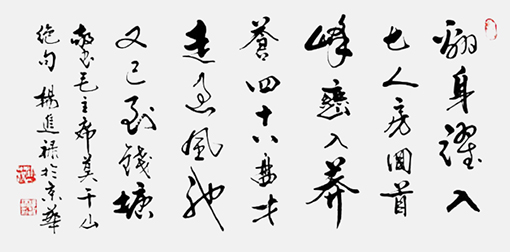 翻身躍入
七人房回首
峰巒入莽
蒼四十八盘才
走过風驰
又已到錢塘
敬书毛主席莫干山
绝句 楊進禄於京華